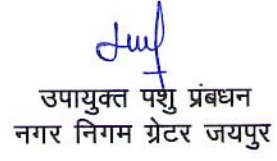 उपायुक्त पशु प्रंबधन
नगर निगम ग्रेटर जयपुर